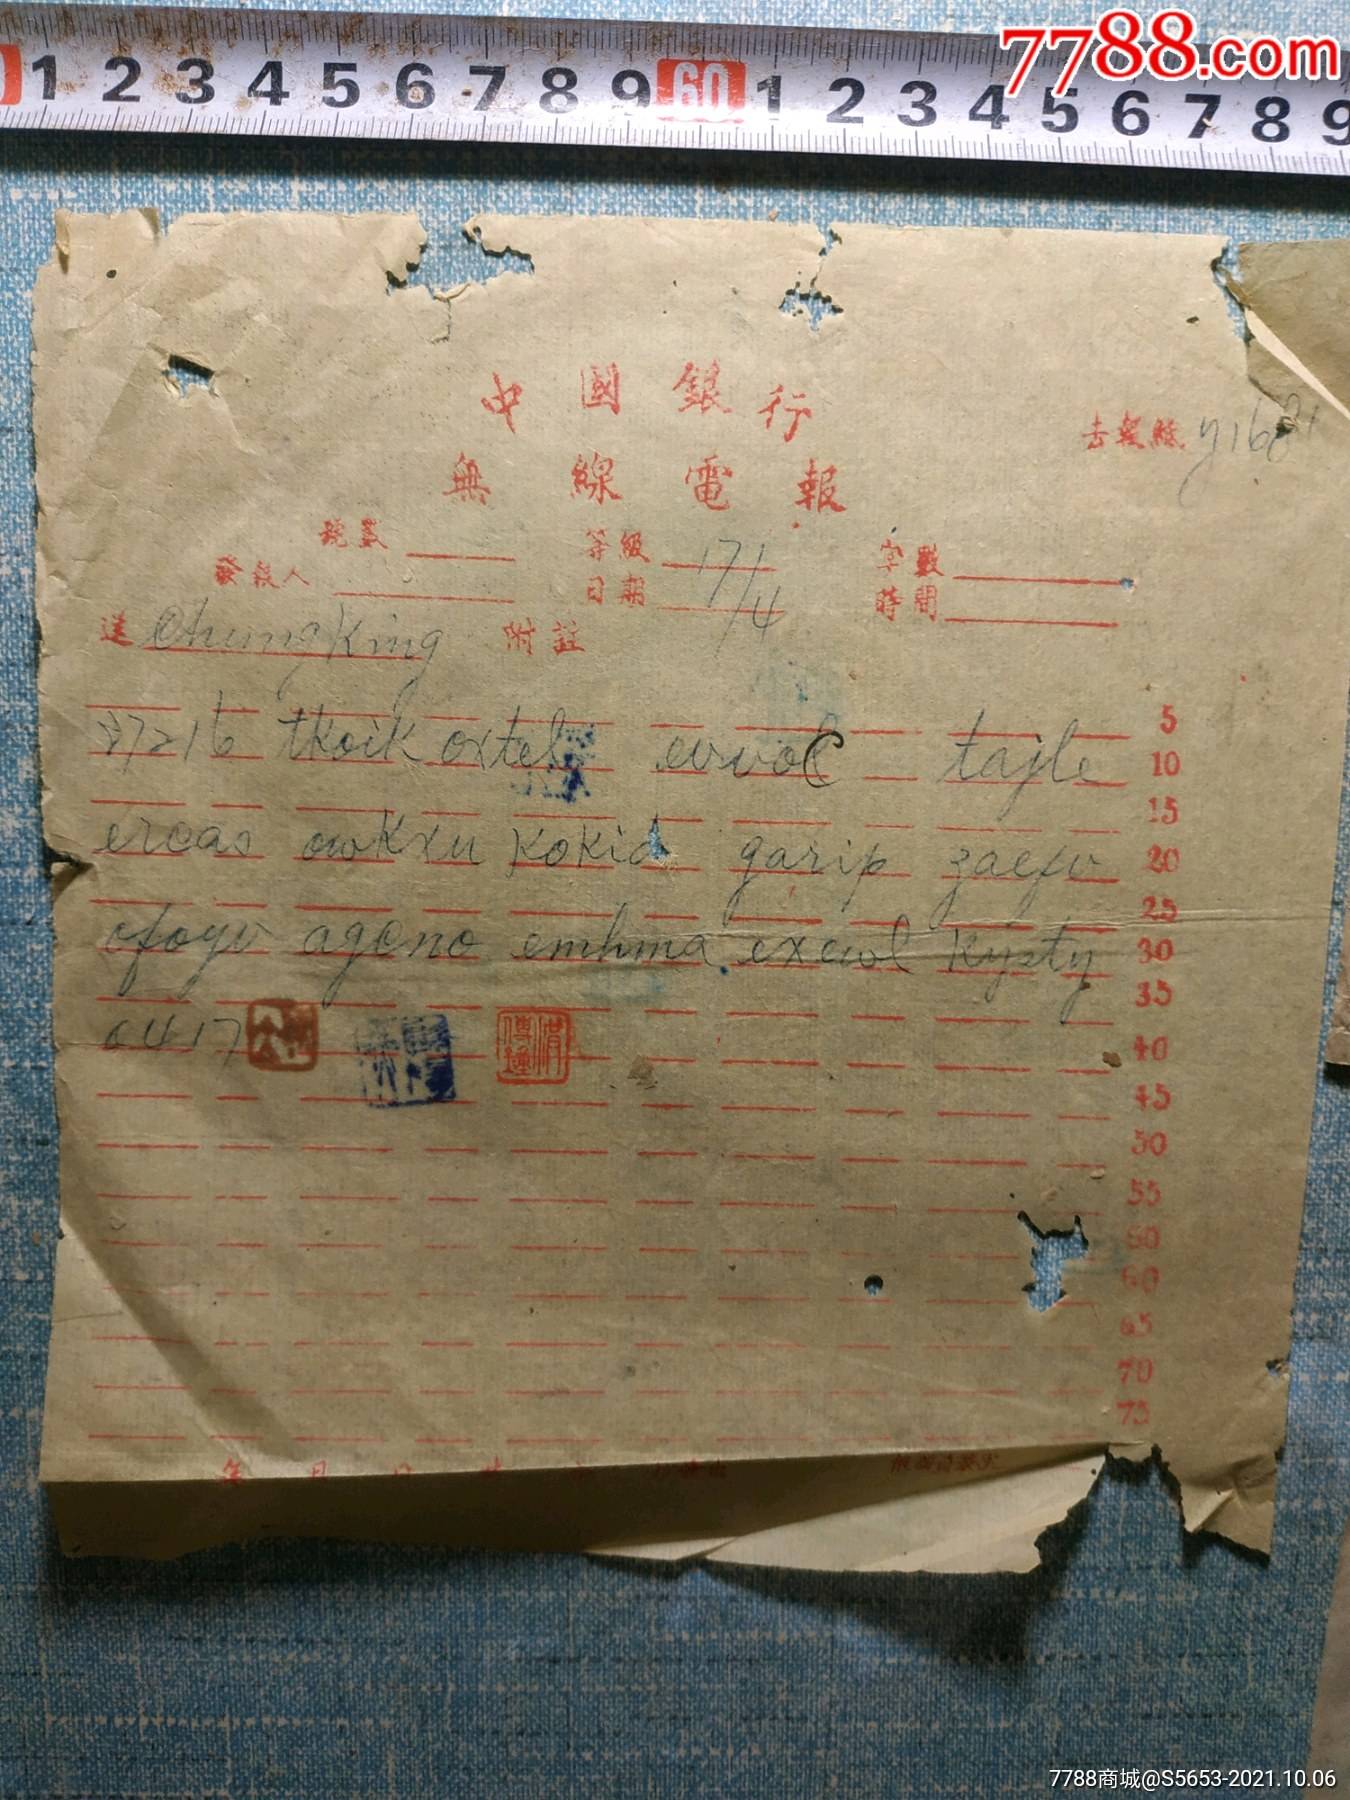 7788.com
1 2 3 4 5 6 7 8 9 60 1 2 3 4 5 6 7 8 9
中國銀行
去報 y16
無線電報
號數 等級 字數
發報人 日期 17/4 時間
送 Chungking 附註
5
37216 tkoik oxtel tajle 10
15
ercas owkxu kokid garip zaefv 20
25
cfoyv ageno emhma exewl kyzty 30
35
6417 40
45
50
55
60
60
65
70
75
年 月 日
7788商城@S5653-2021.10.06